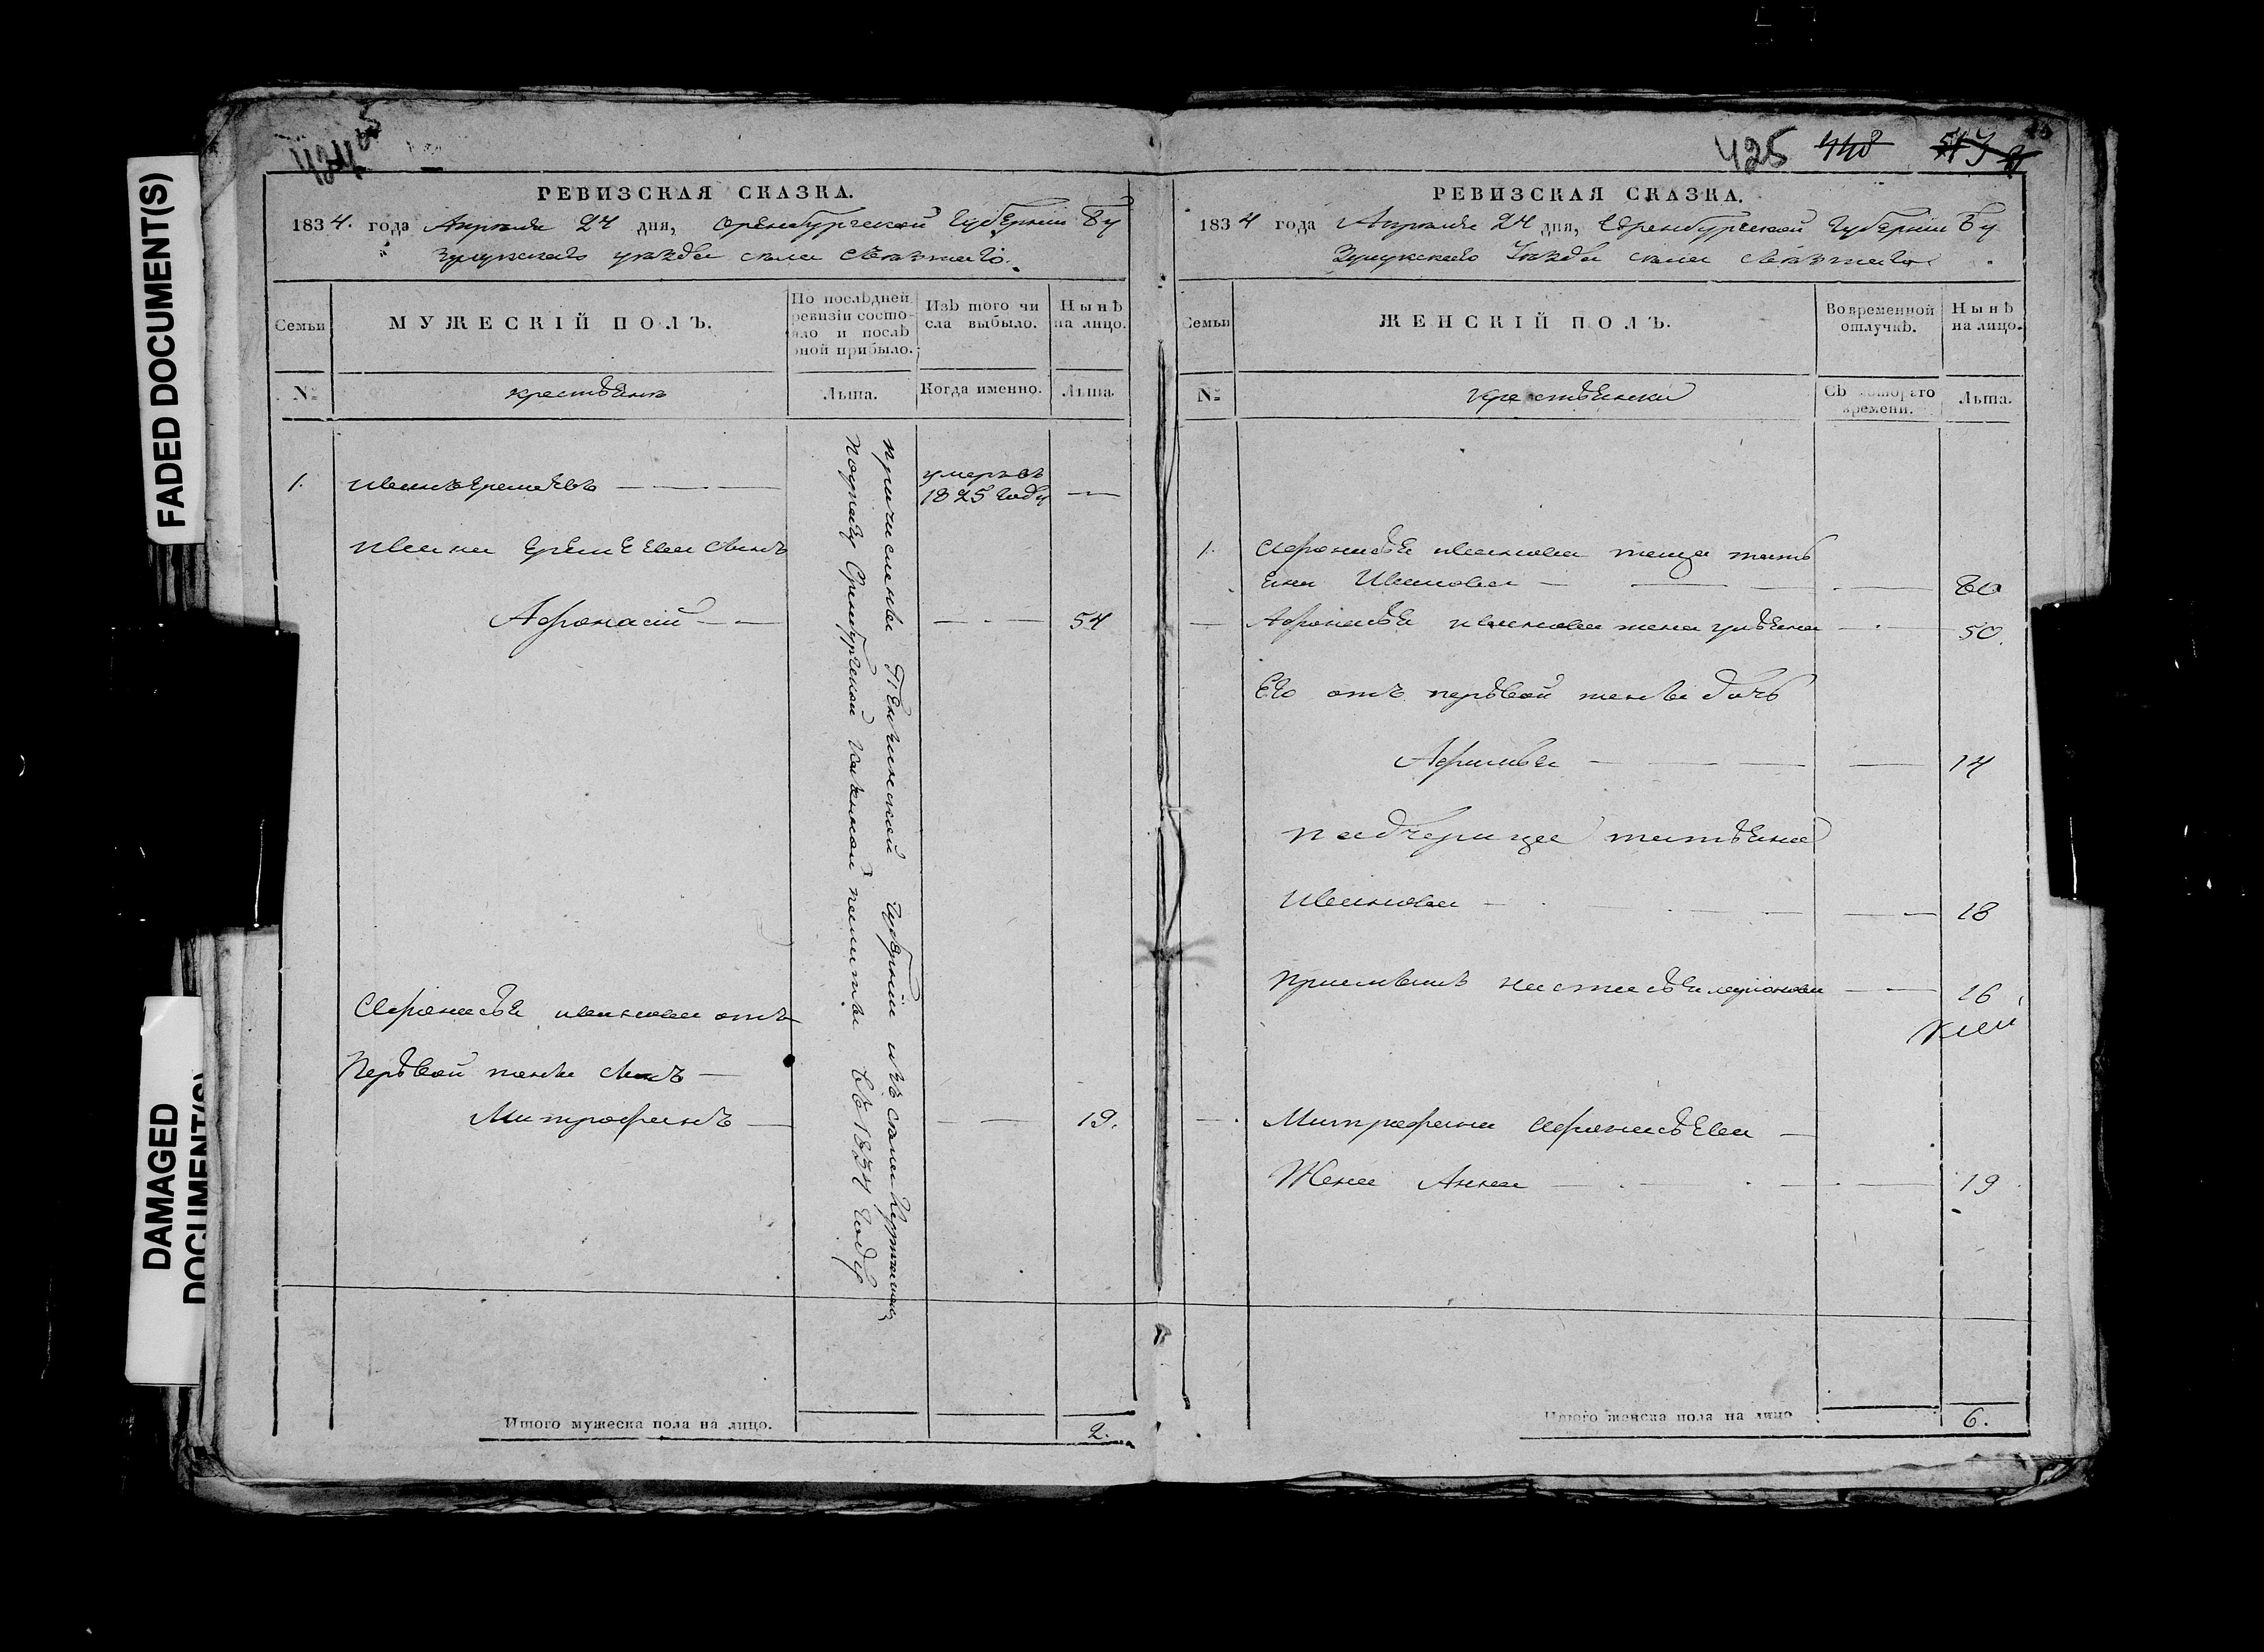 FADED DOCUMENT(S)
DAMAGED
DOCUMENT(S)
424 об
РЕВИЗСКАЯ СКАЗКА.
1834. года Апреля 24 дня, Оренбургской Губернии Бу
зулукского уезда села
Семьи
МУЖЕСКІЙ ПОЛЪ.
По послѣдней ревизіи состо-
яло и послѣ
оной прибыло.
Изъ того чи
сла выбыло.
Нынѣ
на лицо.
№
крестьянъ
Лѣта.
Когда именно.
Лѣта.
1. Иванъ Еремеевъ
умеръ въ
1825 году
Ивана Еремеева сынъ
Афонасий 54
причислены Пензинской губернии изъ села
по указу Оренбургской казенной палаты въ 1834 году
Афонасья Иванова отъ
первой жены сынъ
Митрофанъ 19.
Итого мужеска пола на лицо. 2.
425 448
РЕВИЗСКАЯ СКАЗКА.
1834 года Апреля 24 дня, Оренбургской Губернии Бу
зулукского Уезда села
Семьи
ЖЕНСКІЙ ПОЛЪ.
Во временной
отлучкѣ.
Нынѣ
на лицо.
№
крестьянски
Съ котораго
времени.
Лѣта.
1. Афонасья Иванова теща тать
яна Иванова 80
Афонасья Иванова жена ульяна 50.
Его отъ первой жены дочь
Афимья 14
падчерица татьяна
Иванова 18
приемышъ настасья 16
Митрофана Афонасьева
Жена Анна 19
Итого женска пола на лицо 6.